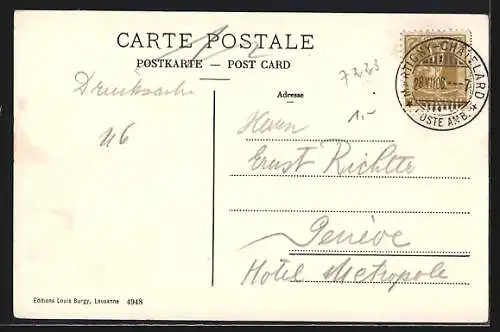 CARTE POSTALE
POSTKARTE — POST CARD
Adresse
Drucksache
7223
1.-
46
Herrn
Ernst Richter
Genève
Hôtel Metropole
MARTIGNY-CHATELARD
POSTE AMB.
Editions Louis Burgy, Lausanne 4948